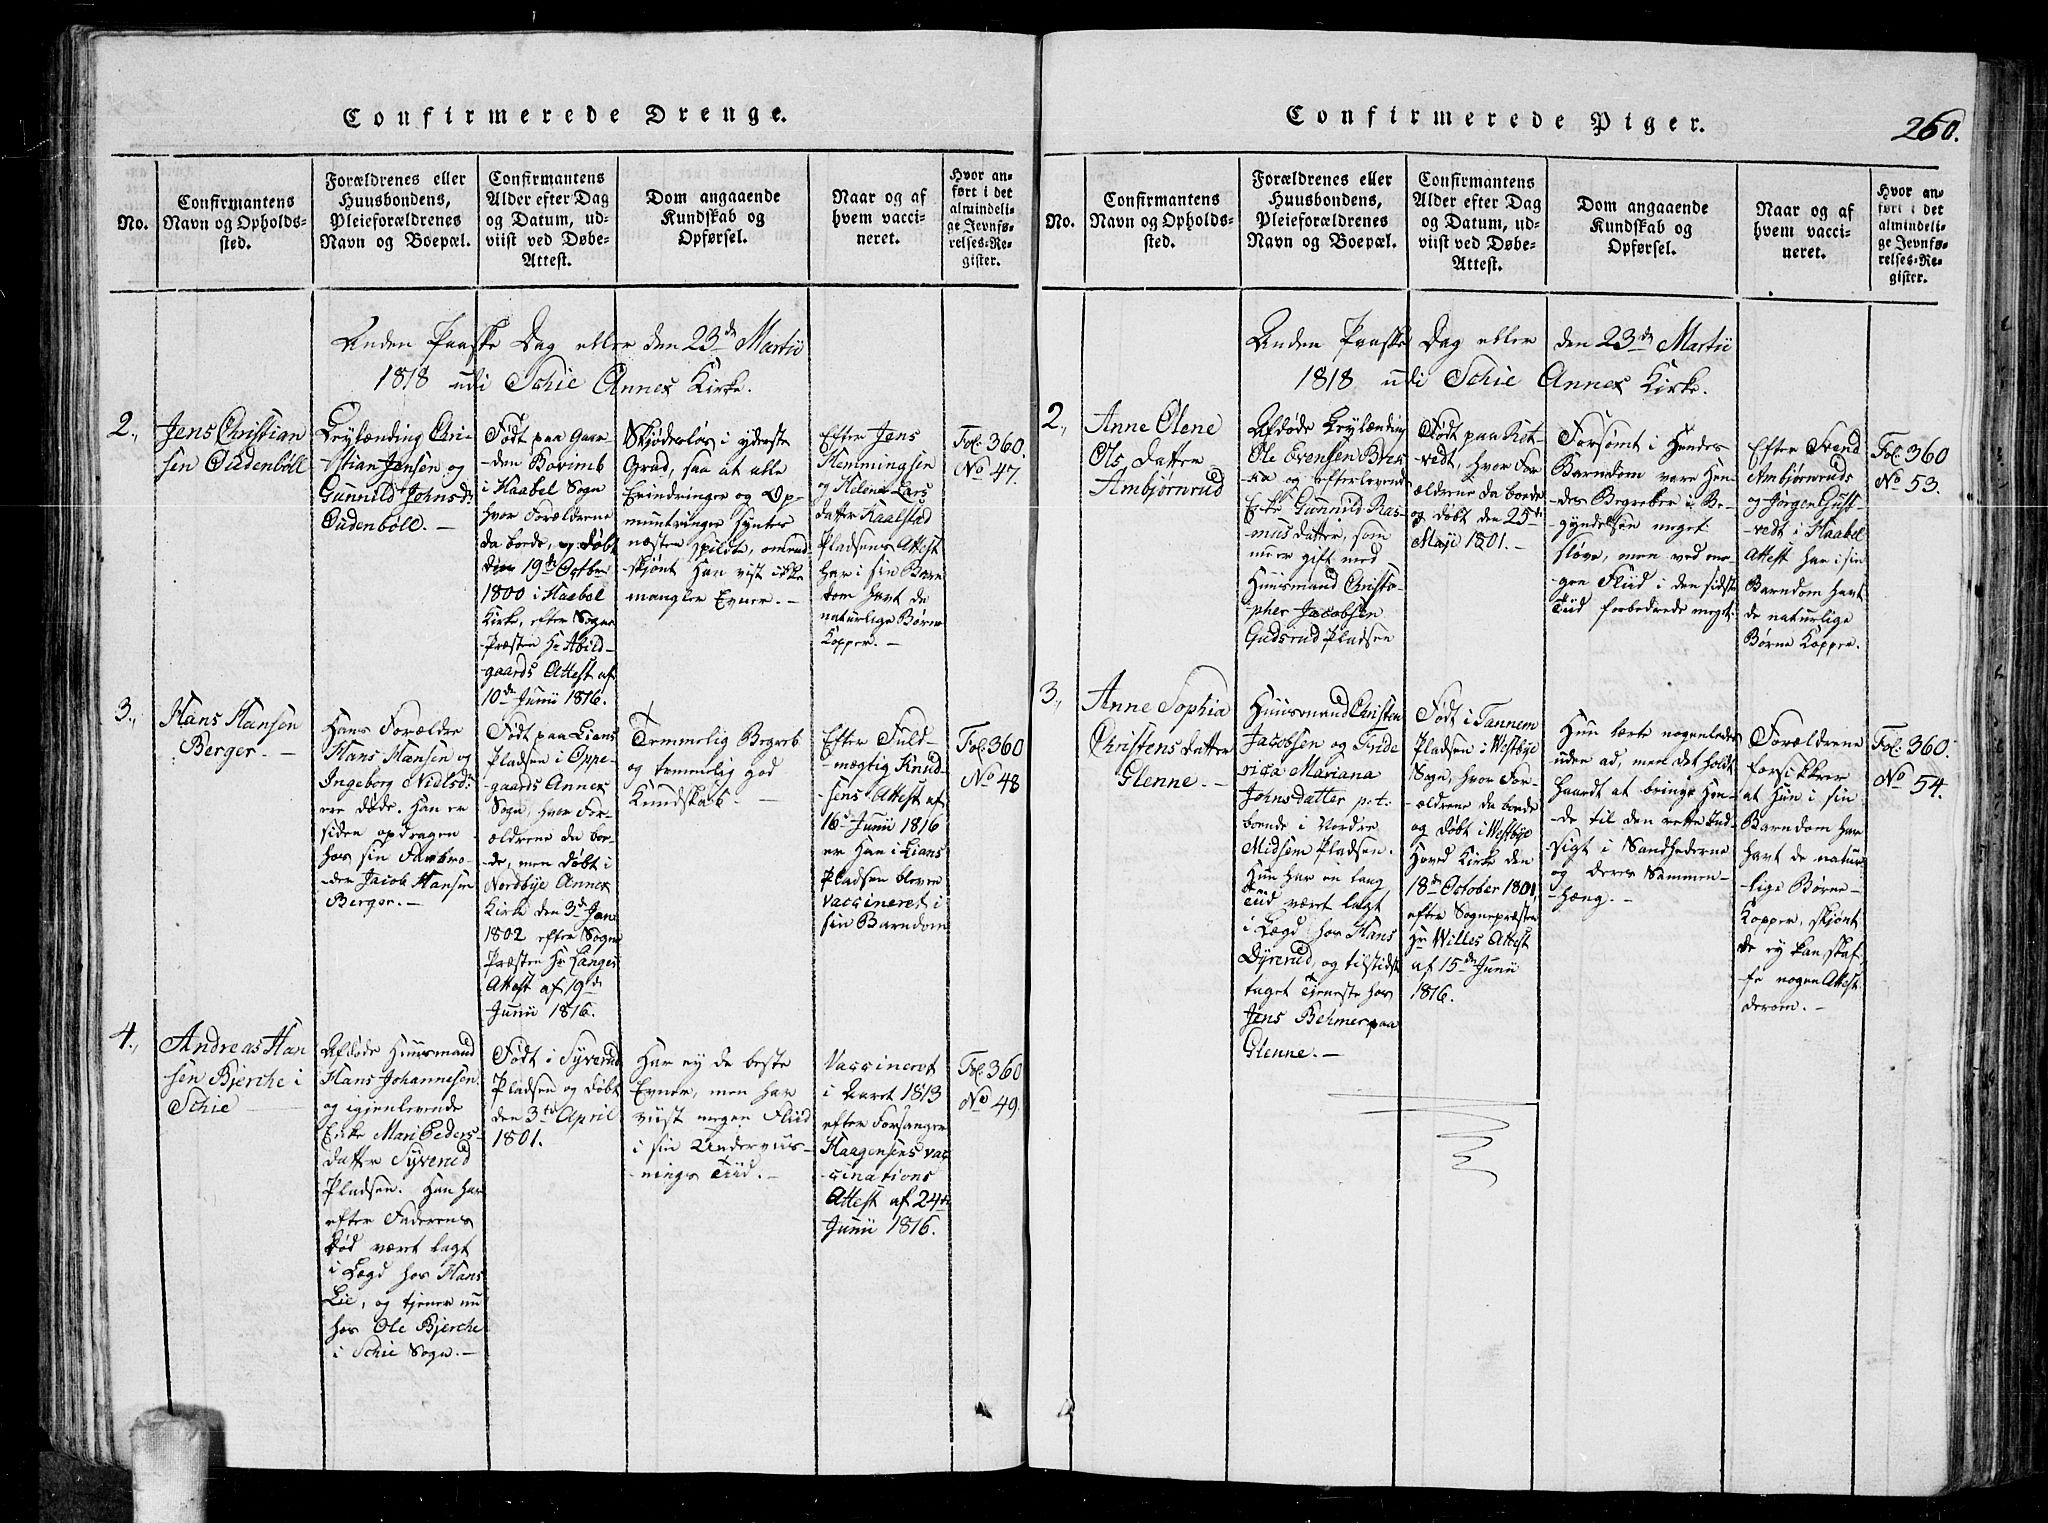 Confirmerede Drenge.
No.
Confirmantens
Navn og Opholds-
sted.
Forældrenes eller
Huusbondens,
Pleieforældrenes
Navn og Boepæl.
Confirmantens
Alder efter Dag
og Datum, ud-
viist ved Døbe-
Attest.
Dom angaaende
Kundskab og
Opførsel.
Naar og af
hvem vacci-
neret.
Hvor an-
ført i det
almindeli-
ge Jevnfø-
relses-Re-
gister.
Anden Paaske Dag eller den 23de Martii
1818 udi Schie Annex Kirke.
2.,
Jens Christian
sen Oudenböll
Leylænding Chri-
stian Jensen og
Gunnild Johnsd:
Oudenböll. -
Födt paa Gaar-
-den Borimb
i Haaböl Sogn
hvor Forældrene
da boede, og döbt
den 19de Octbr
1800 i Haaböl
Kirke, efter Sogne
Præsten Hr Abild-
gaards Attest af
10de Junii 1816.
Skjödeslös i yderste
Grad, saa at alle
Erindringer og Op-
muntringer syntes
næsten spildt, omend-
skjönt han vist ikke
mangler Evner. -
Efter Jens
Hemmingsen
og Helene Lars
datter Kaalstad
Pladsens Attest
har i sin Barn
dom havt de
naturlige Börne
Kopper. -
Fol: 360.
No 47.
3.,
Hans Hansen
Berger. -
Hans Forældre
Hans Hansen og
Ingeborg Nielsd:
ere döde. Han er
siden opdragen
hos sin Farbro-
-der Jacob Hansen
Berger. -
Födt paa Lians
Pladsen i Oppe-
gaards Annex
Sogn, hvor For-
ældrene da boe-
de, men döbt i
Nordbye Annex
Kirke den 3de Jan.
1802 efter Sogne
Præsten Hr Langes
Attest af 19de
Junii 1816.
Temmelig Begreb
og temmelig god
Kundskab. -
Efter Fuld-
-mægtig Knud-
sens Attest af
16de Junii 1816
er han i Lians
Pladsen bleven
vaccineret i
sin Barndom
Fol: 360
No 48
4.,
Andreas Han
sen Bjerche i
Schie
Afdöde Huusmand
Hans Johannesen
og igjenlevende
Enke Mari Peders-
datter Syverud
Pladsen. Han har
efter Faderens
död været lagt
i Lægd hos Hans
Lie, og tjener nu
hos Ole Bjerche
i Schie Sogn. -
Födt i Syverud
Pladsen og döbt
den 3die April
1801.
Har ey de beste
Evner, men har
viist megen Fliid
i sin Underviis-
-nings Tiid. -
Vaccineret
i Aaret 1813
efter Forsanger
Haagensens vac
-cinations
Attest af 24de
Junii 1816.
Fol: 360
No 49.
Confirmerede Piger.
260.
No.
Confirmantens
Navn og Opholds-
sted.
Forældrenes eller
Huusbondens,
Pleieforældrenes
Navn og Boepæl.
Confirmantens
Alder efter Dag
og Datum, ud-
viist ved Døbe-
Attest.
Dom angaaende
Kundskab og
Opførsel.
Naar og af
hvem vacci-
neret.
Hvor an-
ført i det
almindeli-
ge Jevnfø-
relses-Re-
gister.
Anden Paaske Dag eller den 23de Martii
1818 udi Schie Annex Kirke.
2.,
Anne Olene
Ols datter
Ambjörnrud
Afdöde Leylænding
Ole Evensen
og efterlevende
Enke Gunnild Ras-
mus datter, som
nu er gift med
Huusmand Christo-
-pher Jacobsen
Gudsrud Pladsen
Födt paa Ret-
vedt, hvor For-
ældrene da boede
og döbt den 25de
Maji 1801. -
Forsömt i Hendes
Barndom vare Hen-
des Begreber i Be-
gyndelsen meget
slöve, men ved me-
gen Fliid i den sidste
Tiid forbedrede meget.
Efter Svend
Ambjörnruds
og Jörgen Gust-
vedt i Haaböl
Attest har i sin
Barndom havt
de naturlige
Börne Kopper.
Fol: 360
No 53.
3.,
Anne Sophia
Christens datter
Glenne. -
Huusmand Christen
Jacobsen og Fride
rica Mariana
Johnsdatter p.t:
boende i Nordre
Midsem Pladsen.
Hun har en lang
Tiid været lagt
i Lægd hos Hans
Dyrerud, og tilsidst
taget Tjeneste hos
Jens Behmer paa
Glenne. -
Födt i Tannem
Pladsen i Westbye
Sogn, hvor For-
-ældrene da boede
og döbt i Westbye
Hoved Kirke den
18de October 1801,
efter Sognepræsten
Hr Willes Attest
af 15de Junii
1816.
Hun læste nogenledes
uden ad, men det holdt
haardt at bringe Hen-
-de til den rette Ind-
sigt i Sandhederne
og deres Sammen-
-hæng. -
Forældrene
forsikkrer
at hun i sin
Barndom har
havt de natur
-lige Börne-
Kopper, skjönt
de ey kan skaf-
fe nogen Attest
derom. -
Fol: 360.
No 54.